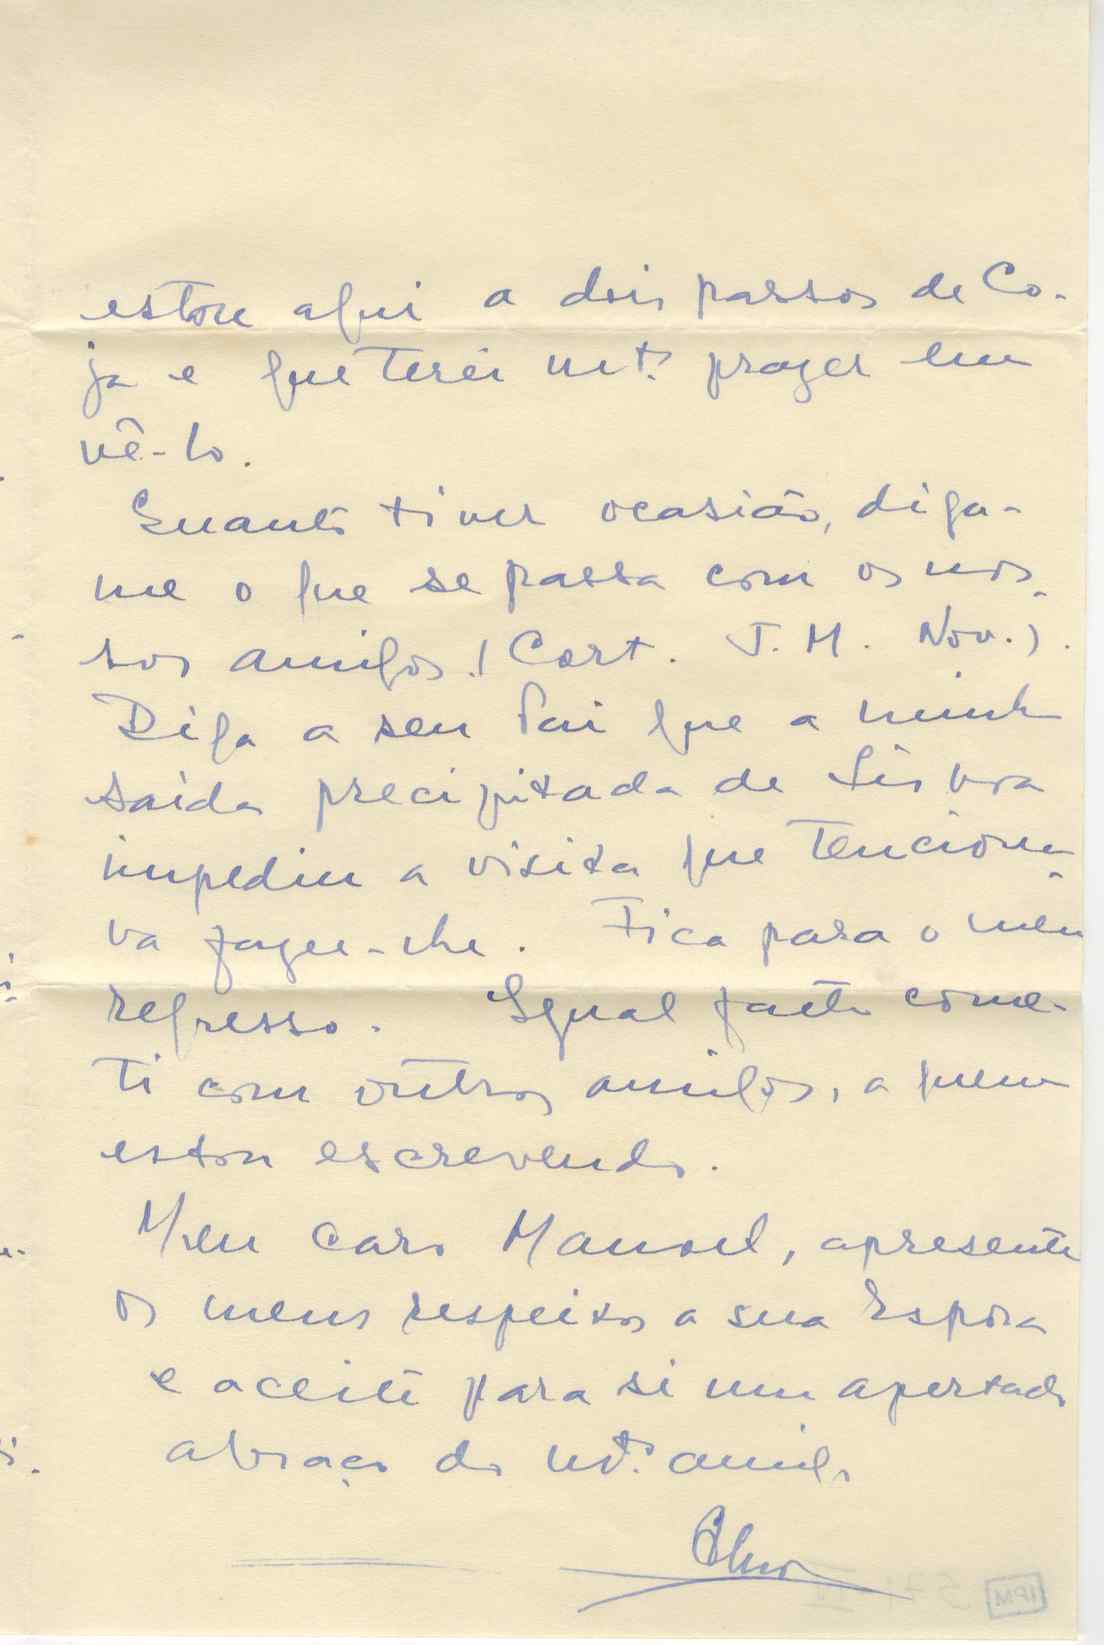 estou aqui a dois passos de Co-
ja e que terei mt.º prazer em
vê-lo.
Quando tiver ocasião, diga-
me o que se passa com os nos-
sos amigos (Cort. J. M. Nov.).
Diga a seu Pai que a minha
saída precipitada de Lisboa
impediu a visita que tenciona-
va fazer-lhe. Fica para o meu
regresso. Igual falta come-
ti com outros amigos, a quem
estou escrevendo.
Meu caro Manoel, apresente
os meus respeitos a sua Esposa
e aceite para si um apertado
abraço do mt.º amigo
IPM